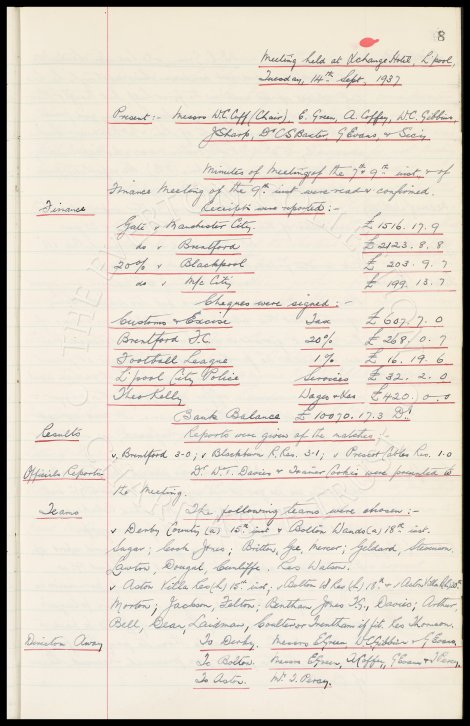 8
Meeting held at Xchange Hotel, L'pool,
Tuesday, 14th Sept, 1937
Present :- Messrs W.C. Cuff (Chair), E. Green, A. Coffey, W.C. Gibbins,
J Sharp, Dr C S Baxter, G Evans & Secy.
Minutes of Meeting of the 7th & 9th inst, & of
Finance Meeting of the 9th inst were read & confirmed.
Finance Receipts were reported :-
Gate v Manchester City £1516. 17. 9
do v Brentford £2123. 8. 8
20% v Blackpool £ 203. 9. 7
do v M/c City £ 199. 13. 7
Cheques were signed :-
Customs & Excise Tax £607. 7. 0
Brentford F.C. 20% £268. 0. 7
Football League 1% £ 16. 19. 6
L'pool City Police Services £ 32. 2. 0
Theo Kelly Wages & es £420. 0. 0
Bank Balance £10070. 17. 3 Dr
Results Reports were given of the matches :-
v. Brentford 3-0; v Blackburn R. Res. 3-1; v Prescot Cables Res. 1-0
Officials Reported Dr. W.T. Davies & Trainer Cooke were presented to
the Meeting.
Teams The following teams were chosen :-
v Derby County (a) 15th inst & Bolton Wands (a) 18th inst.
Sagar; Cook Jones; Britton, Gee, Mercer; Geldard, Stevenson,
Lawton Dougal, Cunliffe. Res Watson.
v Aston Villa Res (h) 15th inst, Bolton W Res (h) 18th & v Aston Villa Res
Morton; Jackson, Felton; Bentham Jones T.G., Davies; Arthur,
Bell, Dean, Laidman, Coulter or Trentham if fit. Res Thomson.
Directors Away To Derby. Messrs E Green, W C Gibbins & G Evans
To Bolton. Messrs E Green, A Coffey, G Evans & T Percy.
To Aston. Mr. T. Percy.